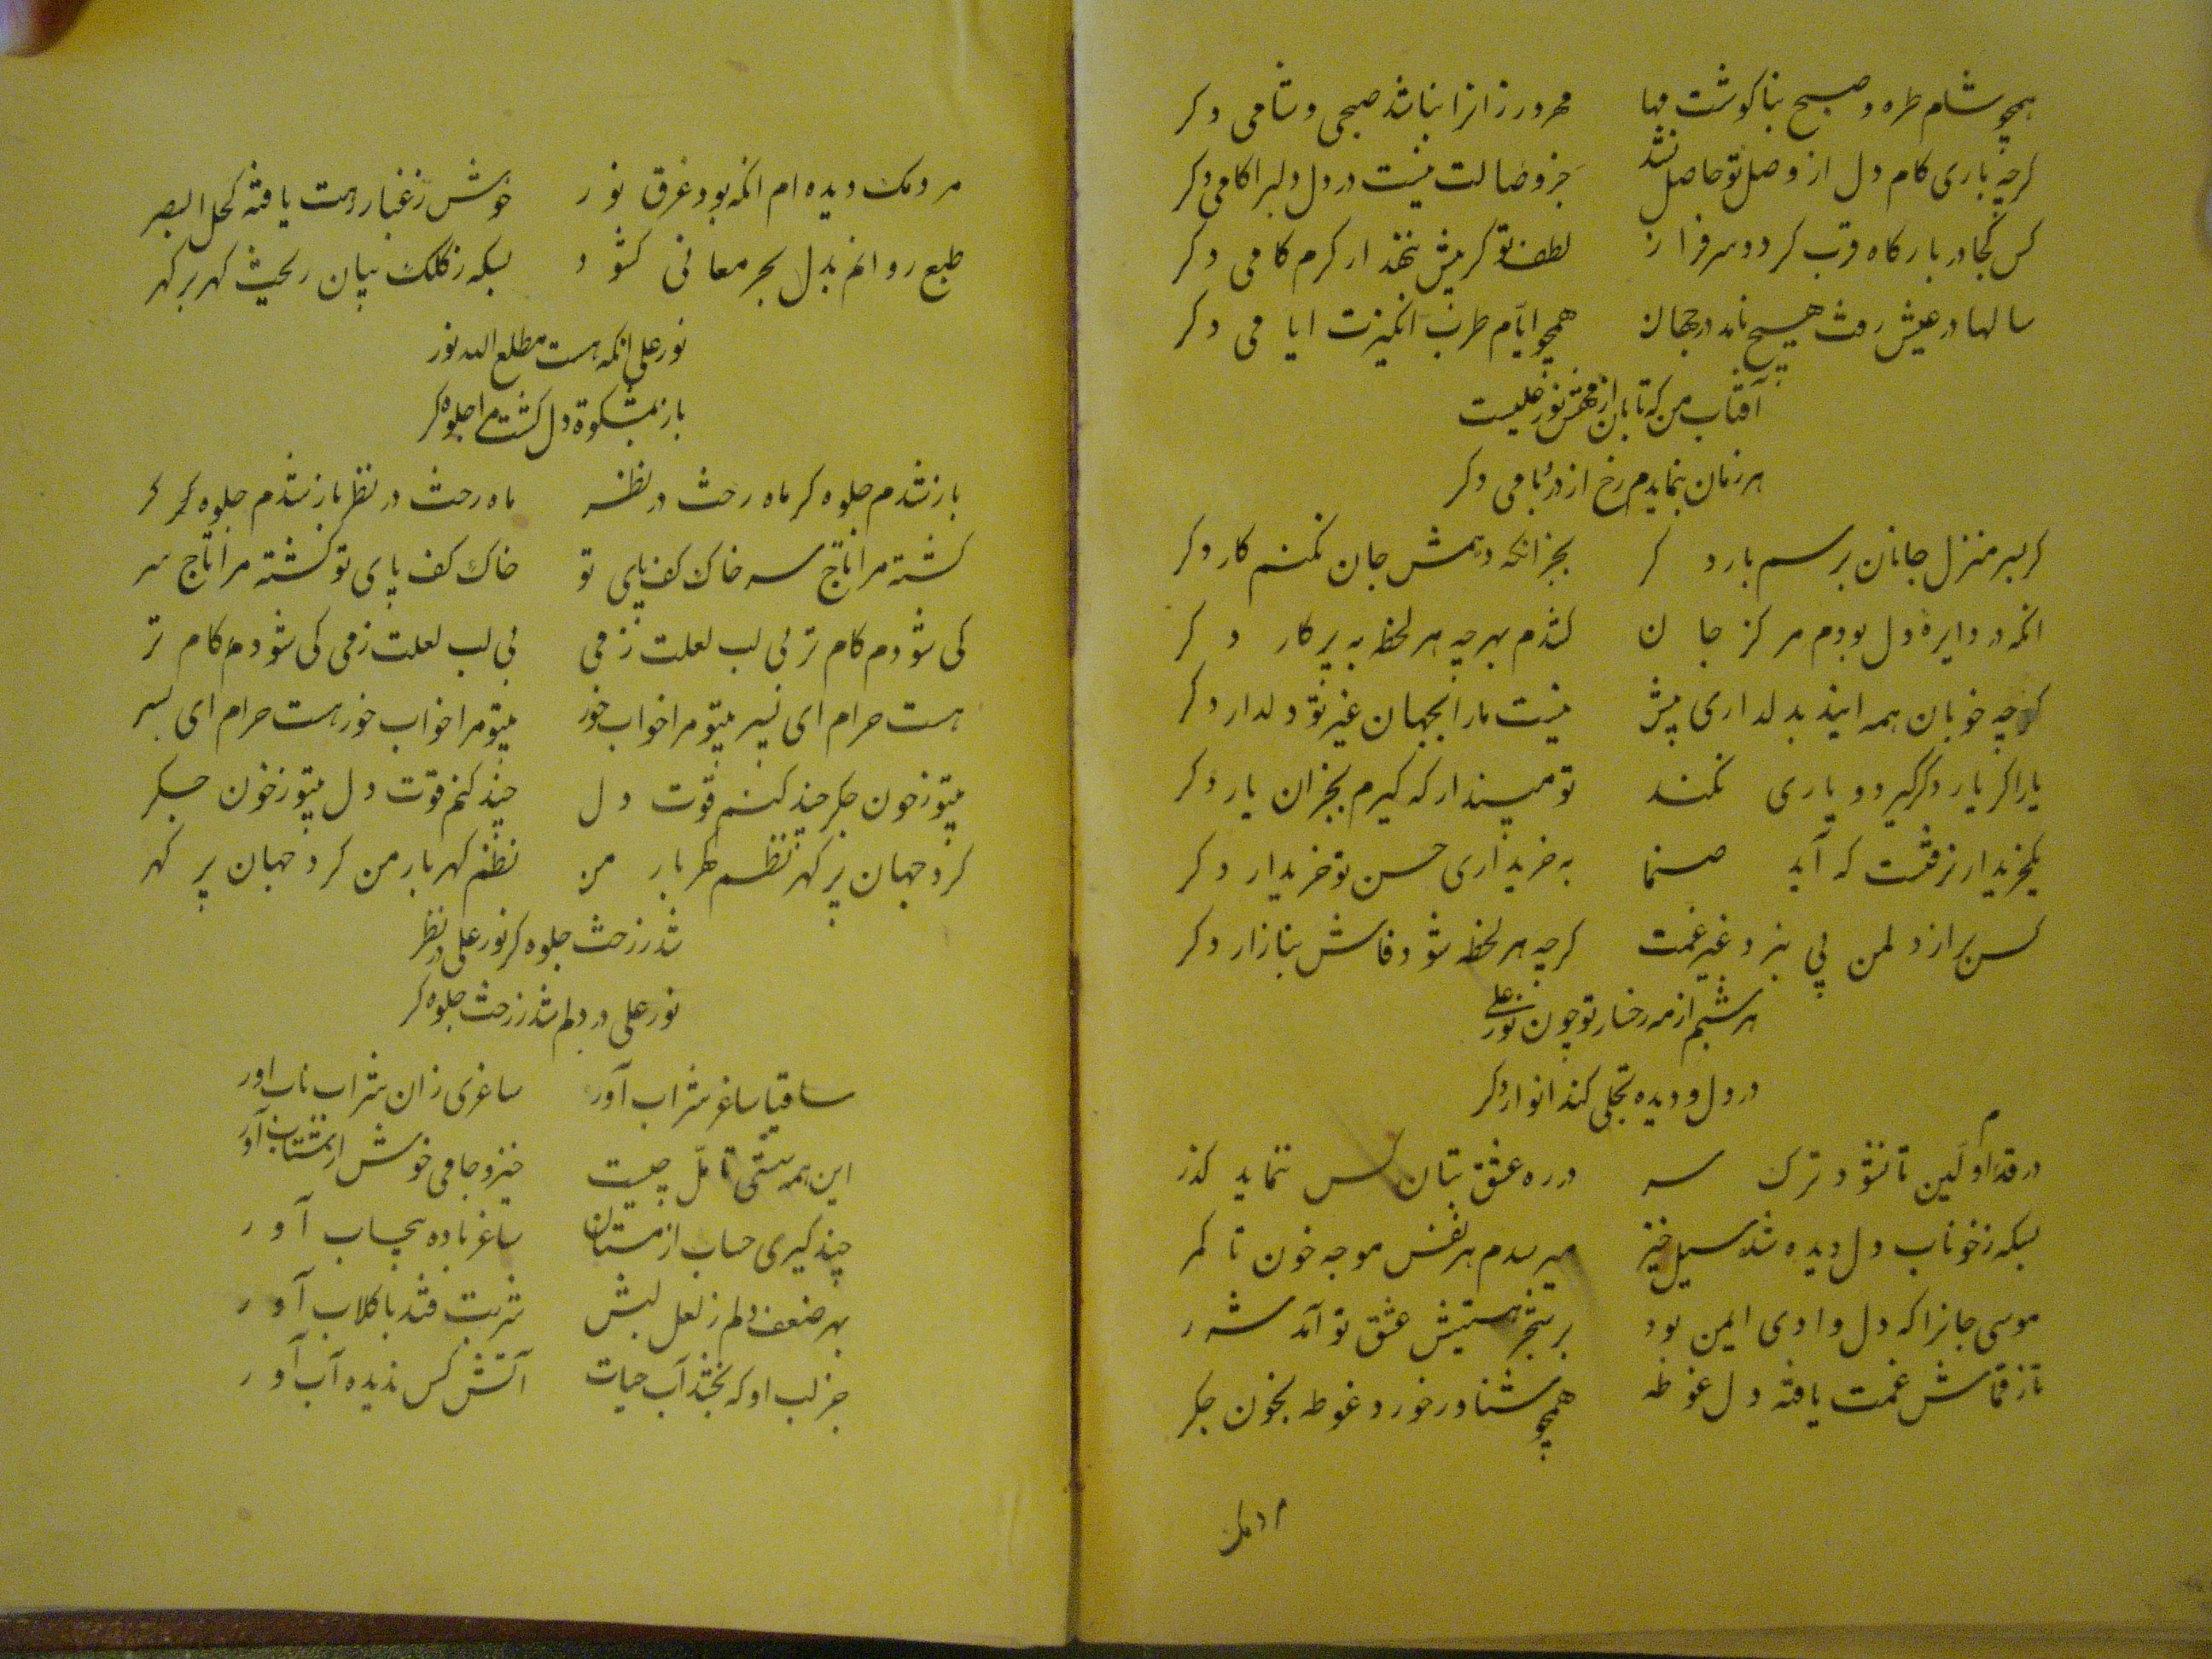 همچو شام طره و صبح بناگوشت مها
مهرورزانرا نباشد صبحی و شامی دگر
گرچه باری کام دل از وصل تو حاصل نشد
جز وصالت نیست در دل دلبرا کامی دگر
کس کجا در بارگاه قرب گردد سرفراز
لطف تو گر پیش ننهد از کرم گامی دگر
سالها در عیش رفت هیچ نامد در جهان
همچو ایّام طرب انگیزت ایامی دگر
آفتاب من که تابان از مهش نور علیست
هر زمان بنمایدم رخ از در و بامی دگر
گر بسر منزل جانان برسم بار دگر
بجز آنکه دهمش جان نکنم کار دگر
آنکه در دایرهٔ دل بودم مرکز جان
کشدم بهر چه هر لحظه به پرکار دگر
گرچه خوبان همه آیند بدلداری پیش
نیست ما را بجهان غیر تو دلدار دگر
یار اگر یار دگر گیرد و یاری نکند
تو مپندار که گیرم بجز آن یار دگر
یکخریدار نرفتست که آید صنما
به خریداری حسن تو خریدار دگر
کس براز دل من پی نبرد غیر غمت
گرچه هر لحظه شود فاش ببازار دگر
هر شبم از مه رخسار تو چون نور علی
در دل و دیده تجلی کند انوار دگر
در قدم اوّلین تا نشود ترک سر
در ره عشق بتان کس ننماید گذر
بسکه ز خوناب دل دیده شد سیل خیز
میرسدم هر نفس موجه خون تا کمر
موسی جانرا که دل وادی ایمن بود
بر شجر هستیش عشق تو آمد شرر
تا ز قماش غمت یافته دل غوطه
همچو شناور خورد غوطه بخون جگر
مردمک
مردمک دیده ام آنکه بود غرق نور
خوش ز غبار رهت یافته کحل البصر
طبع روانم بدل بحر معانی گشود
بسکه ز کلک بیان ریخت گهر بر گهر
نور علی آنکه هست مطلع الله نور
باز بمشکوة دل گشت مرا جلوه گر
باز شدم جلوه گر ماه رخت در نظر
ماه رخت در نظر باز شدم جلوه گر
گشته مرا تاج سر خاک کف پای تو
خاک کف پای تو گشته مرا تاج سر
کی شودم کام تر بی لب لعلت ز می
بی لب لعلت ز می کی شودم کام تر
هست حرام ای پسر بیتو مرا خواب خور
بیتو مرا خواب خور هست حرام ای پسر
بیتو ز خون جگر چند کنم قوت دل
چند کنم قوت دل بیتو ز خون جگر
کرد جهان پر گهر نظم گهربار من
نظم گهربار من کرد جهان پر گهر
شد ز رخت جلوه گر نور علی در نظر
نور علی در دلم شد ز رخت جلوه گر
ساقیا ساغر شراب آور
ساغری زان شراب ناب آور
این همه سستی تامّل چیست
خیز و جامی خوش از شتاب آور
چند گیری حساب از مستان
ساغر باده بیحساب آور
بهر ضعف دلم ز لعل لبش
شربت قند با گلاب آور
جز لب او که بخشد آب حیات
آتش کس ندیده آب آور